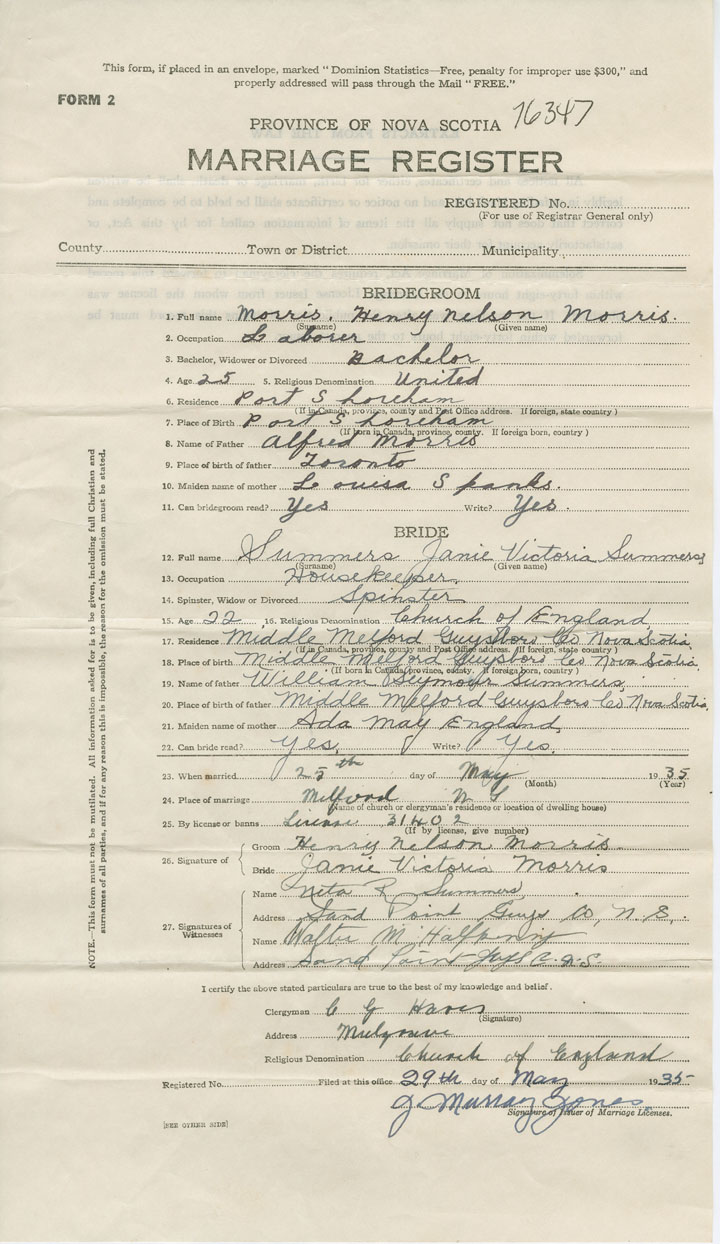 This form, if placed in an envelope, marked "Dominion Statistics—Free, penalty for improper use $300," and
properly addressed will pass through the Mail "FREE."
FORM 2
PROVINCE OF NOVA SCOTIA 76347
MARRIAGE REGISTER
REGISTERED No.
(For use of Registrar General only)
County Town or District Municipality
BRIDEGROOM
1. Full name Morris. Henry Nelson Morris.
(Surname) (Given name)
2. Occupation Laborer
3. Bachelor, Widower or Divorced Bachelor
4. Age 25 5. Religious Denomination United
6. Residence Port Shoreham
(If in Canada, province, county and Post Office address. If foreign, state country)
7. Place of Birth Port Shoreham
(If born in Canada, province, county. If foreign born, country)
8. Name of Father Alfred Morris
9. Place of birth of father Toronto
10. Maiden name of mother Louisa Spanks.
11. Can bridegroom read? Yes Write? Yes.
BRIDE
12. Full name Summers Janie Victoria Summers
(Surname) (Given name)
13. Occupation Housekeeper.
14. Spinster, Widow or Divorced Spinster
15. Age 22 16. Religious Denomination Church of England
17. Residence Middle Melford Guysboro Co Nova Scotia
(If in Canada, province, county and Post Office address. If foreign, state country)
18. Place of birth Middle Melford Guysboro Co Nova Scotia.
(If born in Canada, province, county. If foreign born, country)
19. Name of father William Seymour Summers,
20. Place of birth of father Middle Melford Guysboro Co Nova Scotia.
21. Maiden name of mother Ada May England,
22. Can bride read? Yes, Write? Yes.
23. When married 25th day of May 1935
(Month) (Year)
24. Place of marriage Milford N S
(Name of church or clergyman's residence or location of dwelling house)
25. By license or banns License 31402
(If by license, give number)
26. Signature of Groom Henry Nelson Morris.
Bride Janie Victoria Morris
27. Signatures of Witnesses
Name Neta R Summers
Address Sand Point Guys Co, N.S.
Name Walter M
Address Sand Point Guys Co. N.S.
I certify the above stated particulars are true to the best of my knowledge and belief.
Clergyman C G
(Signature)
Address Mulgrave
Religious Denomination Church of England
Registered No. Filed at this office 29th day of May 1935
J Murray Jones
Signature of Issuer of Marriage Licenses.
[SEE OTHER SIDE]
NOTE.—This form must not be mutilated. All information asked for is to be given, including full Christian and
surnames of all parties, and if for any reason this is impossible, the reason for the omission must be stated.